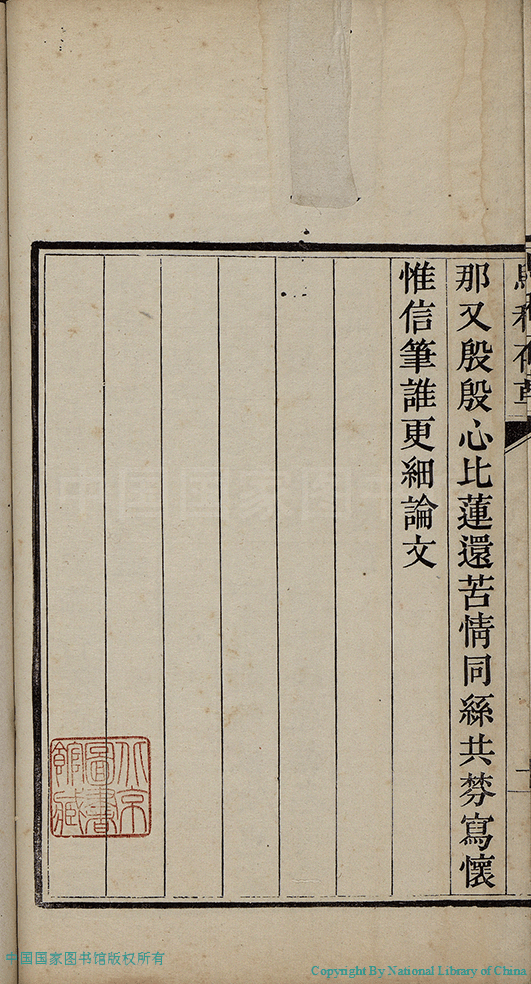 那又殷殷心比蓮還苦情同絲共棼寫懷
惟信筆誰更細論文
北京圖書館藏
中国国家图书馆版权所有
Copyright By National Library of China